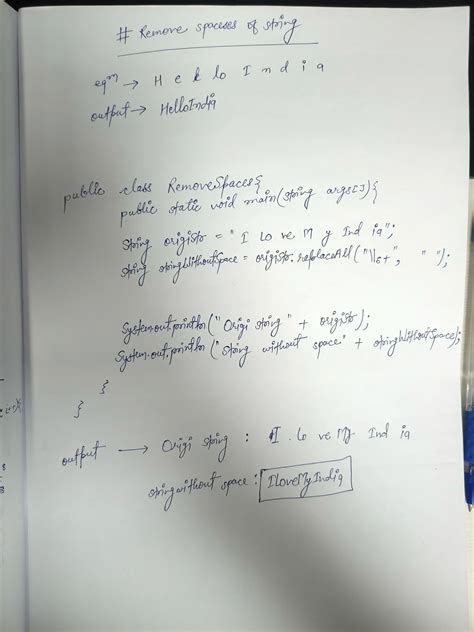 # Remove spacess of string
eqⁿ → H e l lo I n d i a
output → HelloIndia
public class RemoveSpaces{
public static void main(string args[]){
String origistr = " I lo ve M y Ind ia";
string stringWithoutSpace = origistr.replaceAll("\\s+", " ");
System.out.println("Origi string " + origistr);
System.out.println("string without space" + stringWithoutSpace);
}
}
output → Origi string : I lo ve My Ind ia
string without space : IloveMyIndia